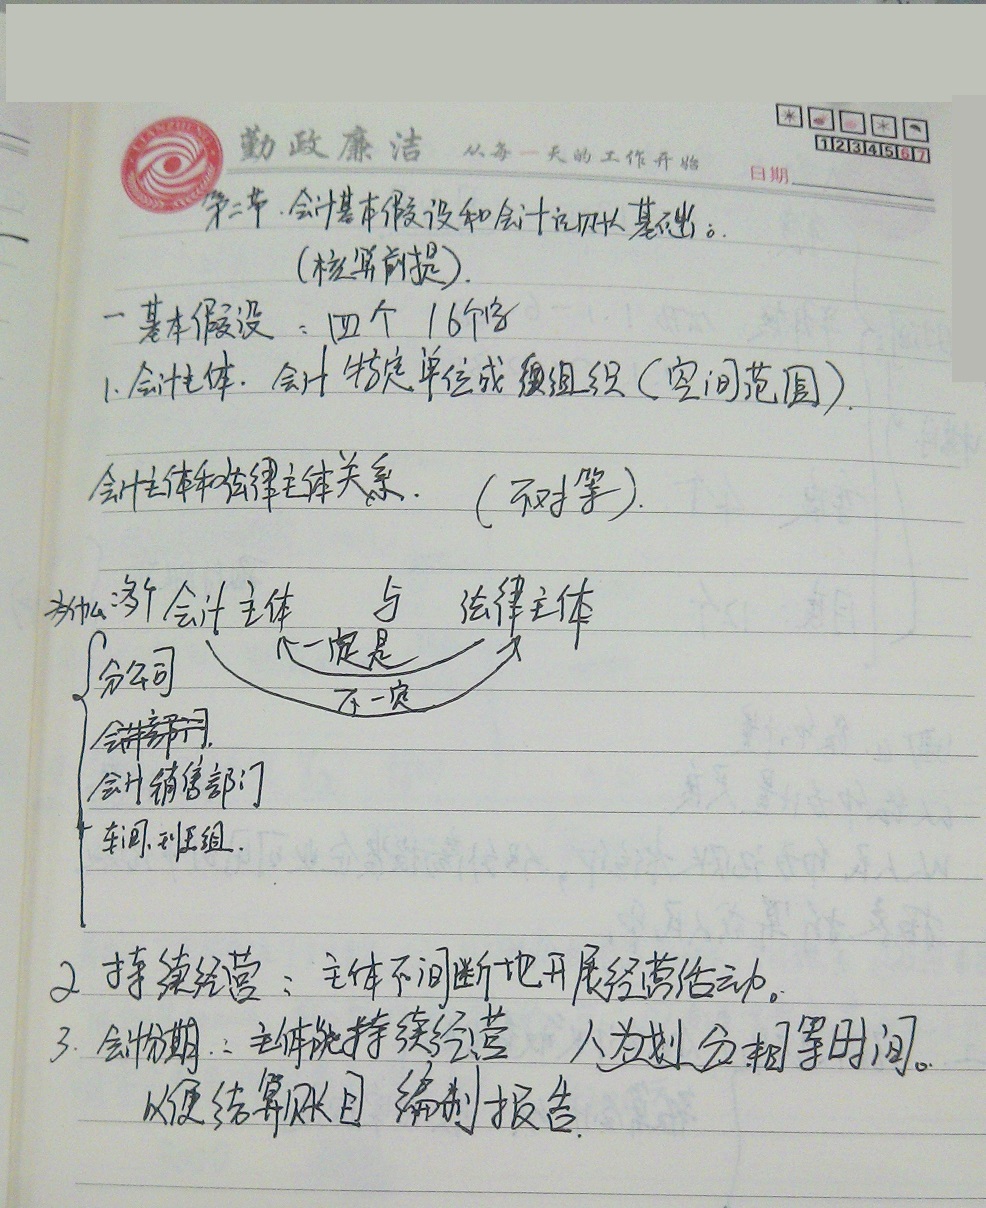 勤政廉洁 从每一天的工作开始
1234567
日期
第二节.会计基本假设和会计记账基础:.
(核算前提).
一基本假设:四个 16个字
1.会计主体. 会计特定单位或 组织(空间范围).
会计主体和法律主体关系. (不对等).
为什么: 会计主体 与 法律主体
一定是
不一定
分公司
会计部门.
会计销售部门
车间.班组.
2 持续经营:主体不间断地开展经营活动。
3.会计分期.:主体能持续经营 人为划分相等时间。
以便结算账目 编制报告.